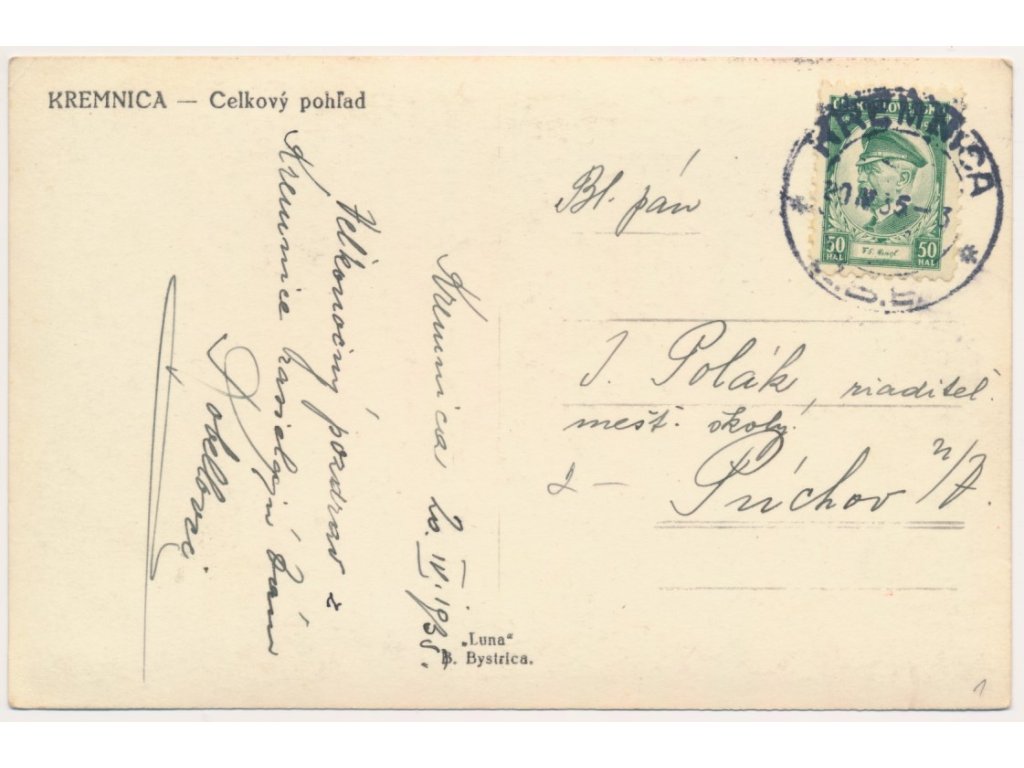 KREMNICA — Celkový pohľad
Kremnica 20. IV. 1935.
Veľkonočný pozdrav z
Kremnice
Bl. pán
J. Polák, riaditeľ
mešt. školy
Púchov n/V.
2 —
KREMNICA
20 IV 35-3
50 HAL
50 HAL
"Luna"
B. Bystrica.
1